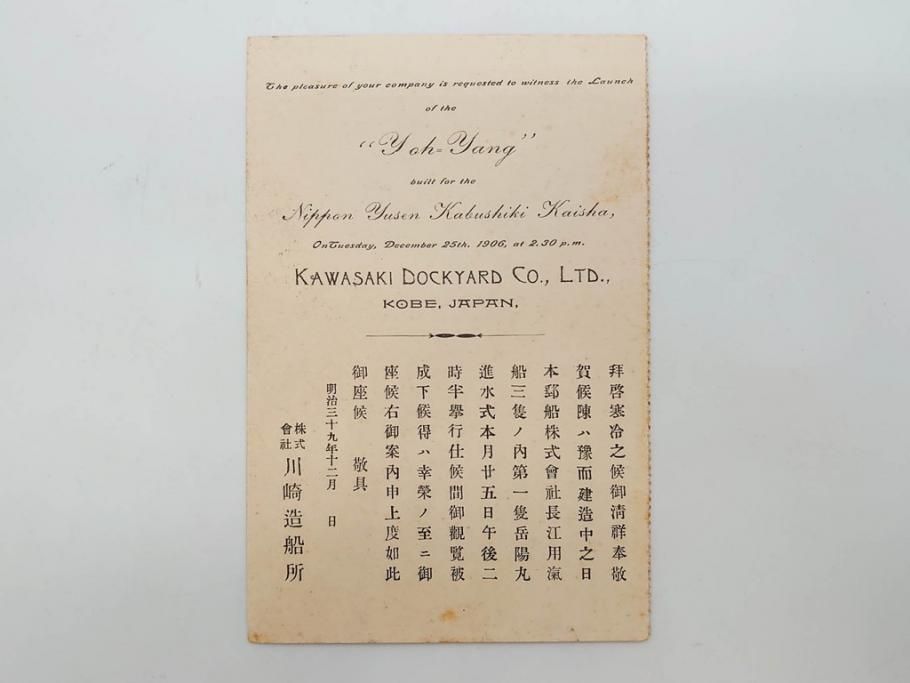 The pleasure of your company is requested to witness the Launch
of the
“Yoh-Yang”
built for the
Nippon Yusen Kabushiki Kaisha,
On Tuesday, December 25th, 1906, at 2.30 p.m.
KAWASAKI DOCKYARD CO., LTD.,
KOBE, JAPAN,
拜啓寒冷之候御淸祥奉敬
賀候陳ハ豫而建造中之日
本郵船株式會社長江用滊
船三隻ノ內第一隻岳陽丸
進水式本月廿五日午後二
時半擧行仕候間御觀覧被
成下候得ハ幸榮ノ至ニ御
座候右御案內申上度如此
御座候 敬具
明治三十九年十二月 日
株式會社 川崎造船所